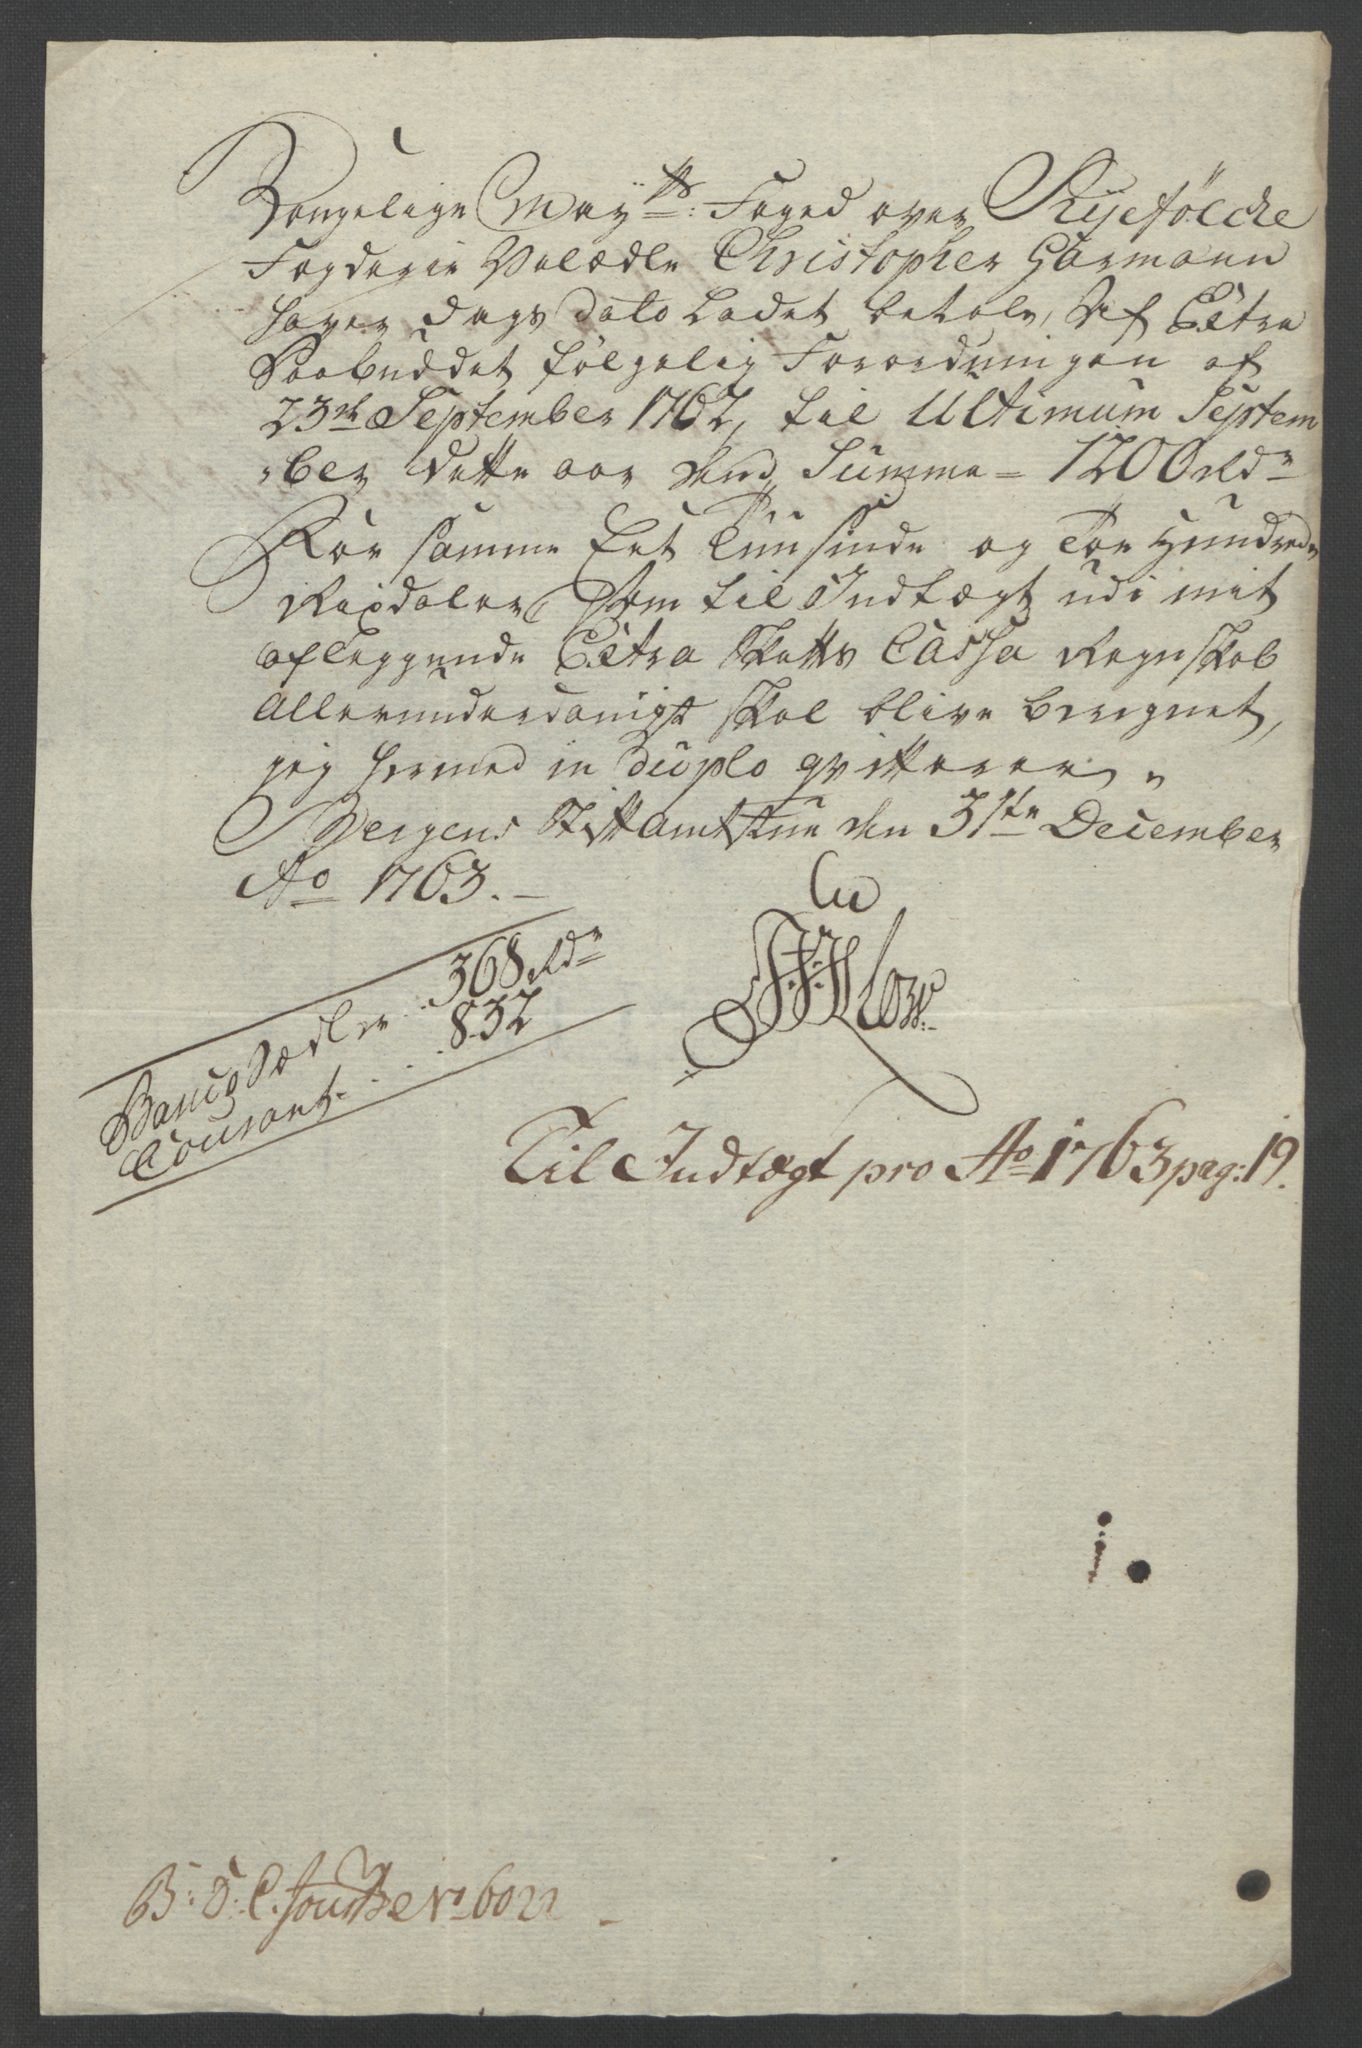 Kongelige May:ts Foged over Ryefølcke
Fogderie Velædle Christopher Garmann
haver dags dato ladet betale, Af Extra
Paabuddet følgelig Forordningen af
23de September 1762, til Ultimum Septem
ber dette aar den Summa = 1200 Rdr
For samme Eet Tuusinde og Toe Hundrede
Rixdaler, som til Indtægt udi mit
aflæggende Extra Skatts Cassa Regnskab
allerunderdanigst skal blive beregnet,
jeg hermed in duplo qvitterer.
Bergens Stiftamtstue den 31te December
Ao 1763. -
Banco Sædler . 368 Rdr
Courant . . . 832
Til Indtægt pro Ao 1763 pag: 19.
1.
B: S: C. No 6022